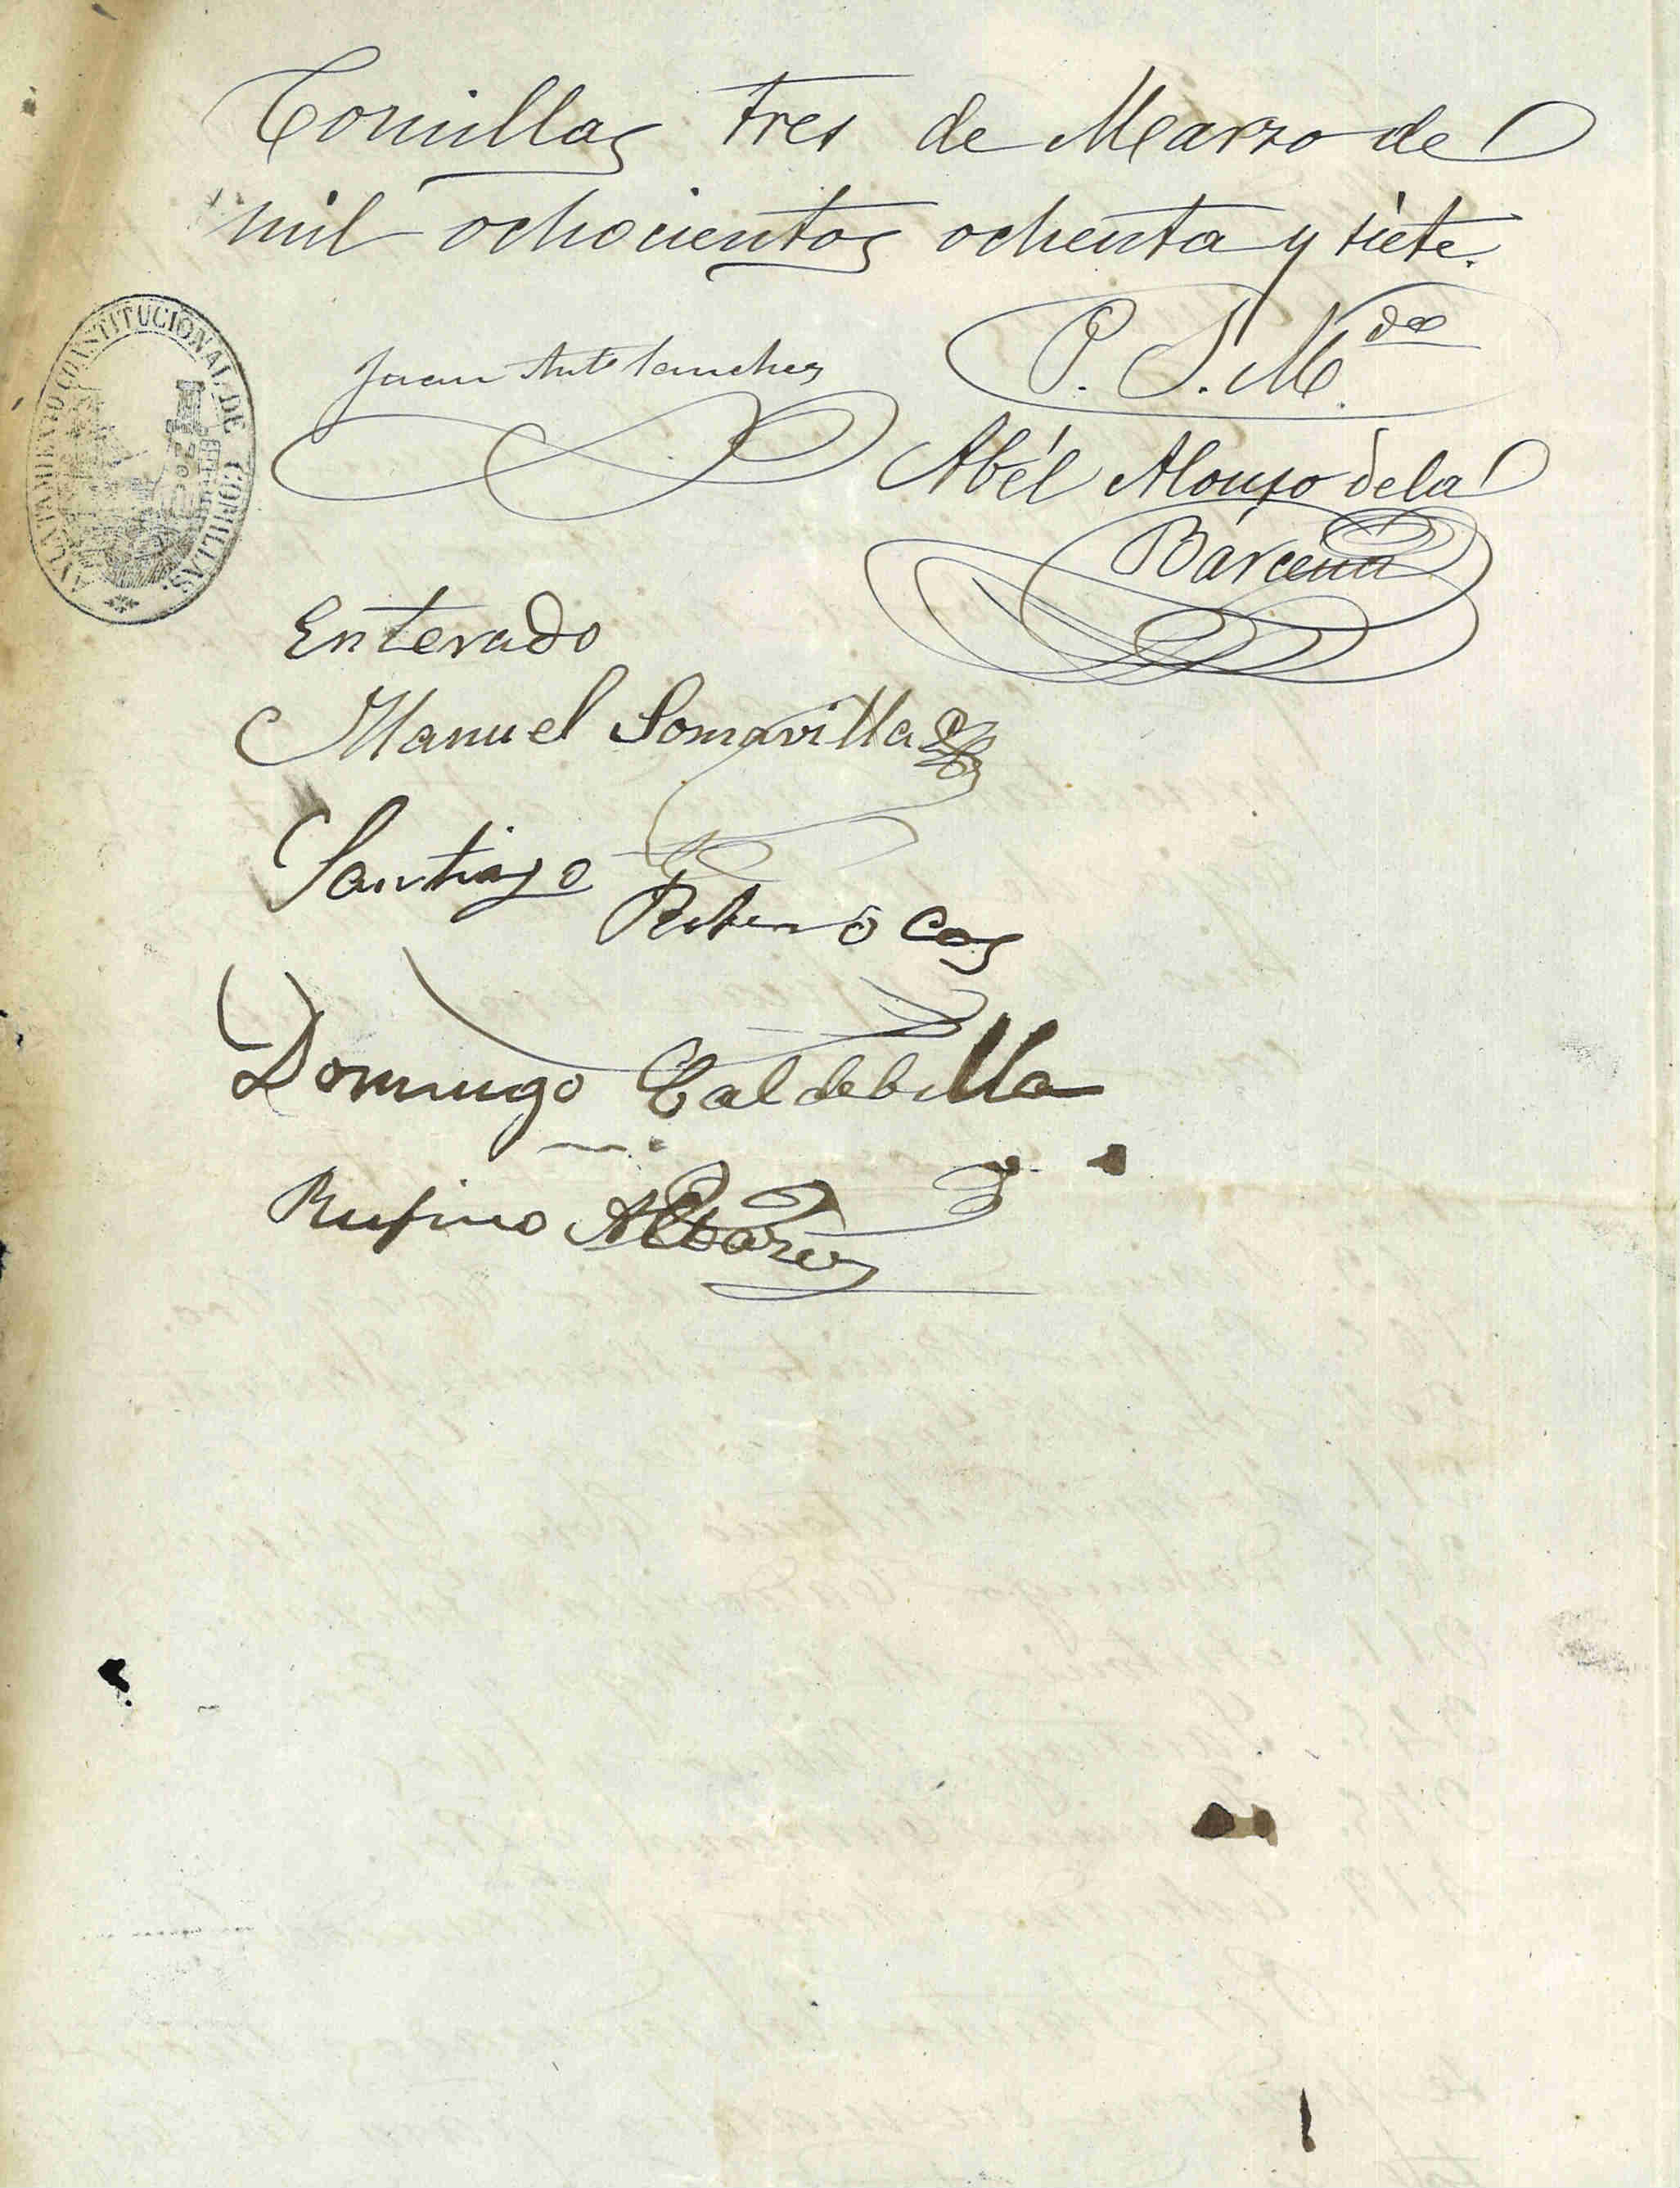 Comillas tres de Marzo de
mil ochocientos ochenta y siete.
AYUNTAMIENTO CONSTITUCIONAL DE COMILLAS
Juan Ant.º Sanchez
P. S. M.do
Abél Alonso de la
Bárcena
Enterado
Manuel Somavilla
Santiago
Cos
Domingo Caldebilla
Rufino